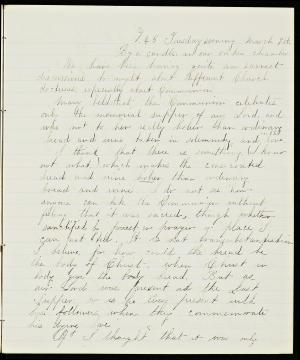 Tuesday evening March 8th
By a candle in our own chamber
We have been having quite an earnest
discussion to-night about different Church
doctrines, especially about Communion.
Mary held that the Communion celebrates
only the memorial supper of our Lord, and
was not to her really holier than ordinary
bread and wine taken in solemnity and love
I think that there is something, I know
not what, which makes the consecrated
bread and wine holier than ordinary
bread and wine. I do not see how
anyone can take the Communion without
feeling that it was sacred, though whether
sanctified by priest or prayer or place I
can not tell. It is not transubstantiation
I believe for how could the bread be
the body of Christ, when Christ in
body gave the body bread. But as
our Lord were present at the Last
Supper, so is he living present with
his followers, when they commemorate
his dying love
If I thought that it was only